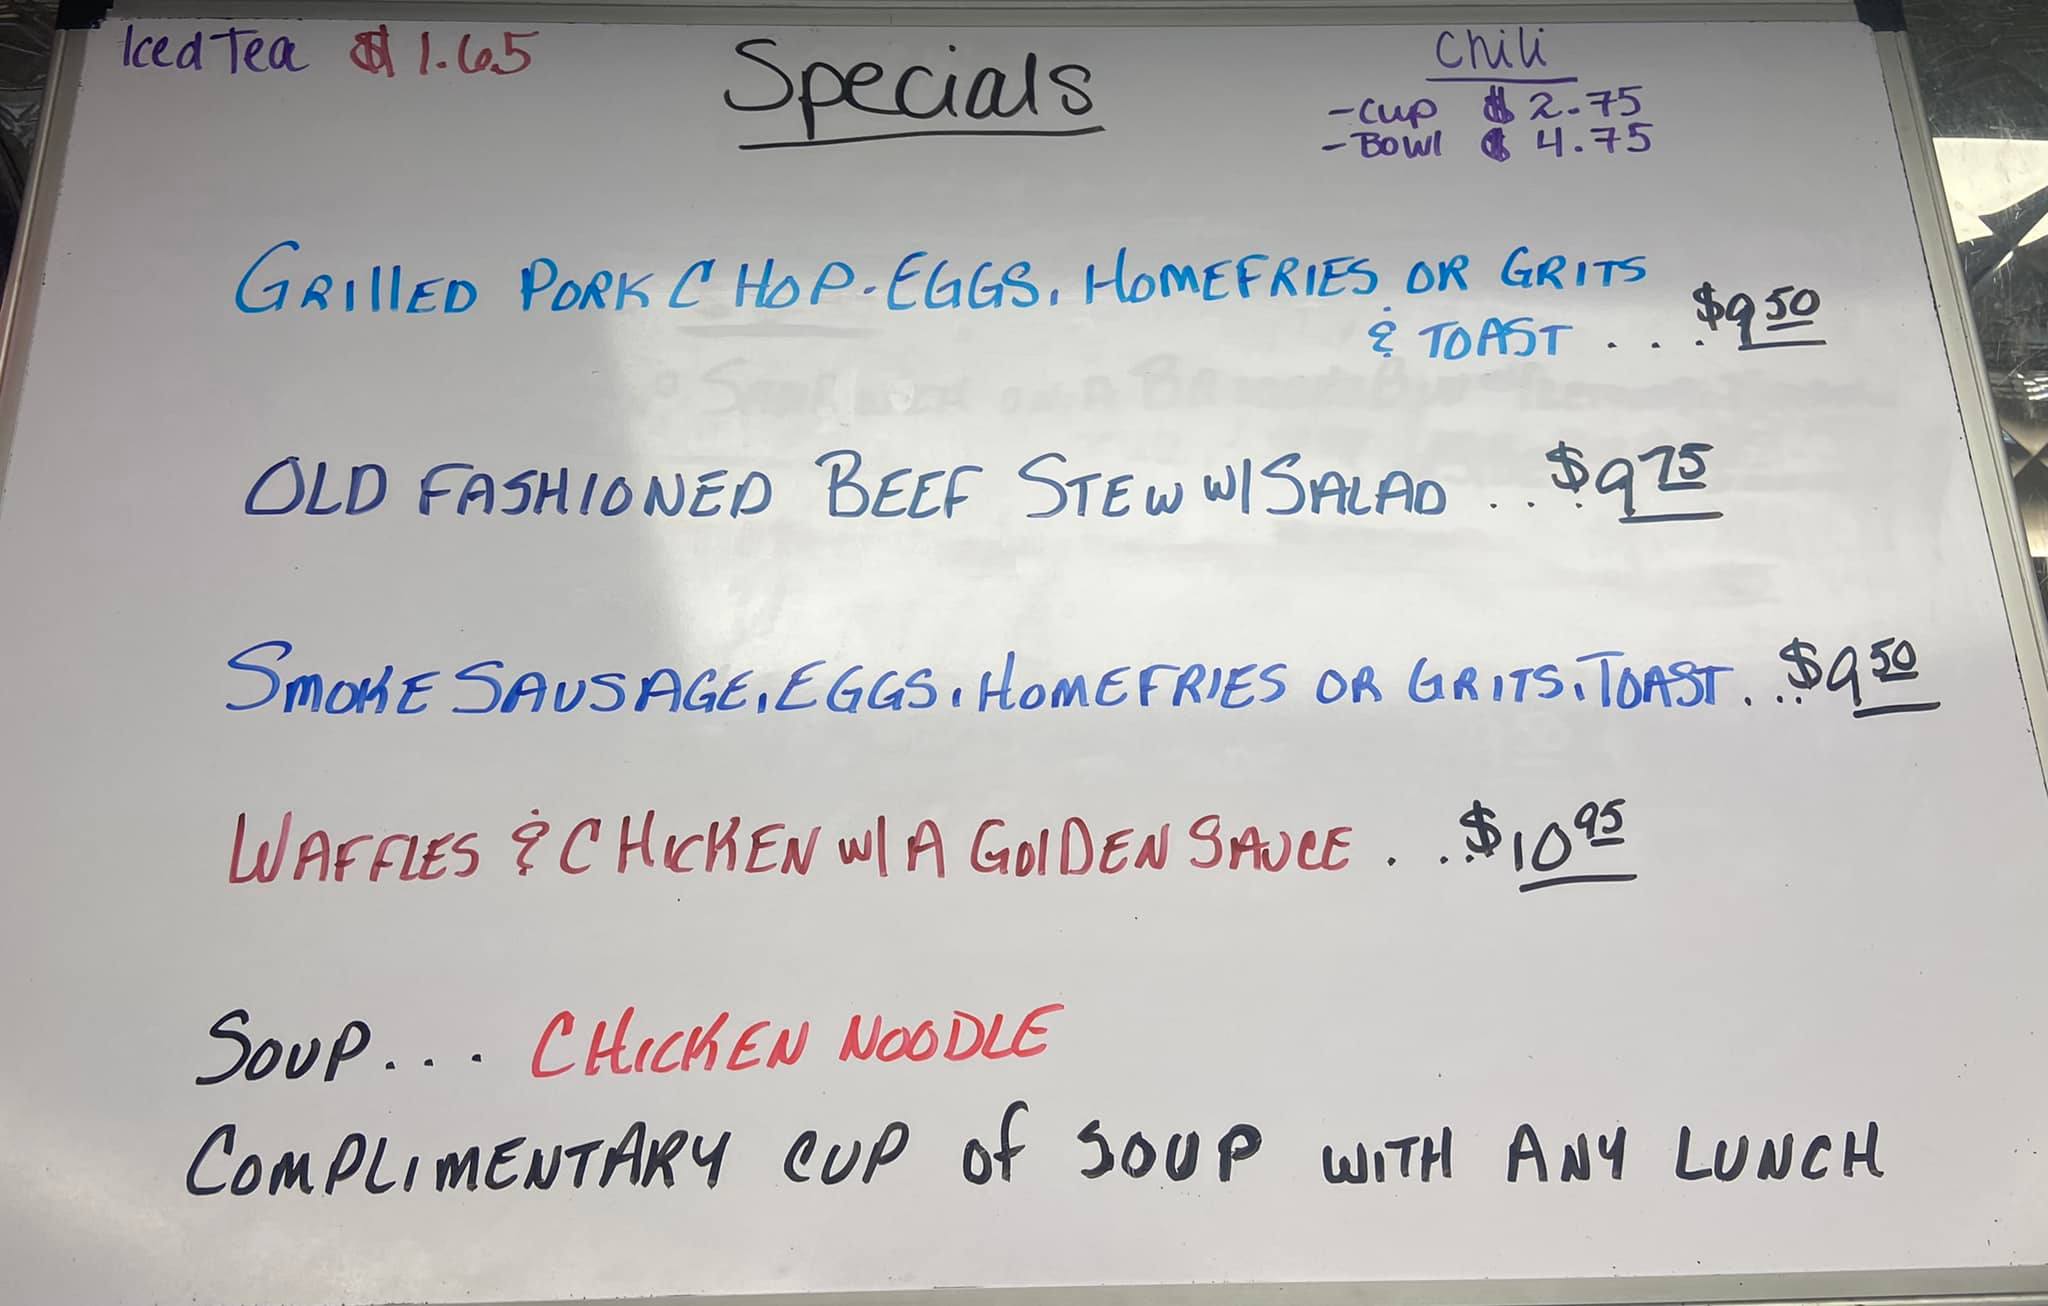 Iced Tea $1.65
Specials
Chili
-Cup $2.75
-Bowl $4.75
GRillED PORK CHOP. EGGS, HOMEFRIES OR GRITS
& TOAST ... $9.50
OLD FASHIONED BEEF STEW W/ SALAD ... $9.75
SMOKE SAUSAGE, EGGS, HOMEFRIES OR GRITS, TOAST ... $9.50
WAFFLES & CHICKEN W/ A GOlDEN SAUCE ... $10.95
SOUP... CHICKEN NOODLE
COMPLIMENTARY CUP of SOUP WITH ANY LUNCH